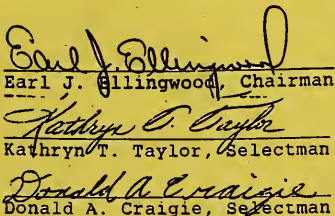 Earl J. Ellingwood
Earl J. Ellingwood, Chairman
Kathryn T. Taylor
Kathryn T. Taylor, Selectman
Donald A. Craigie
Donald A. Craigie, Selectman